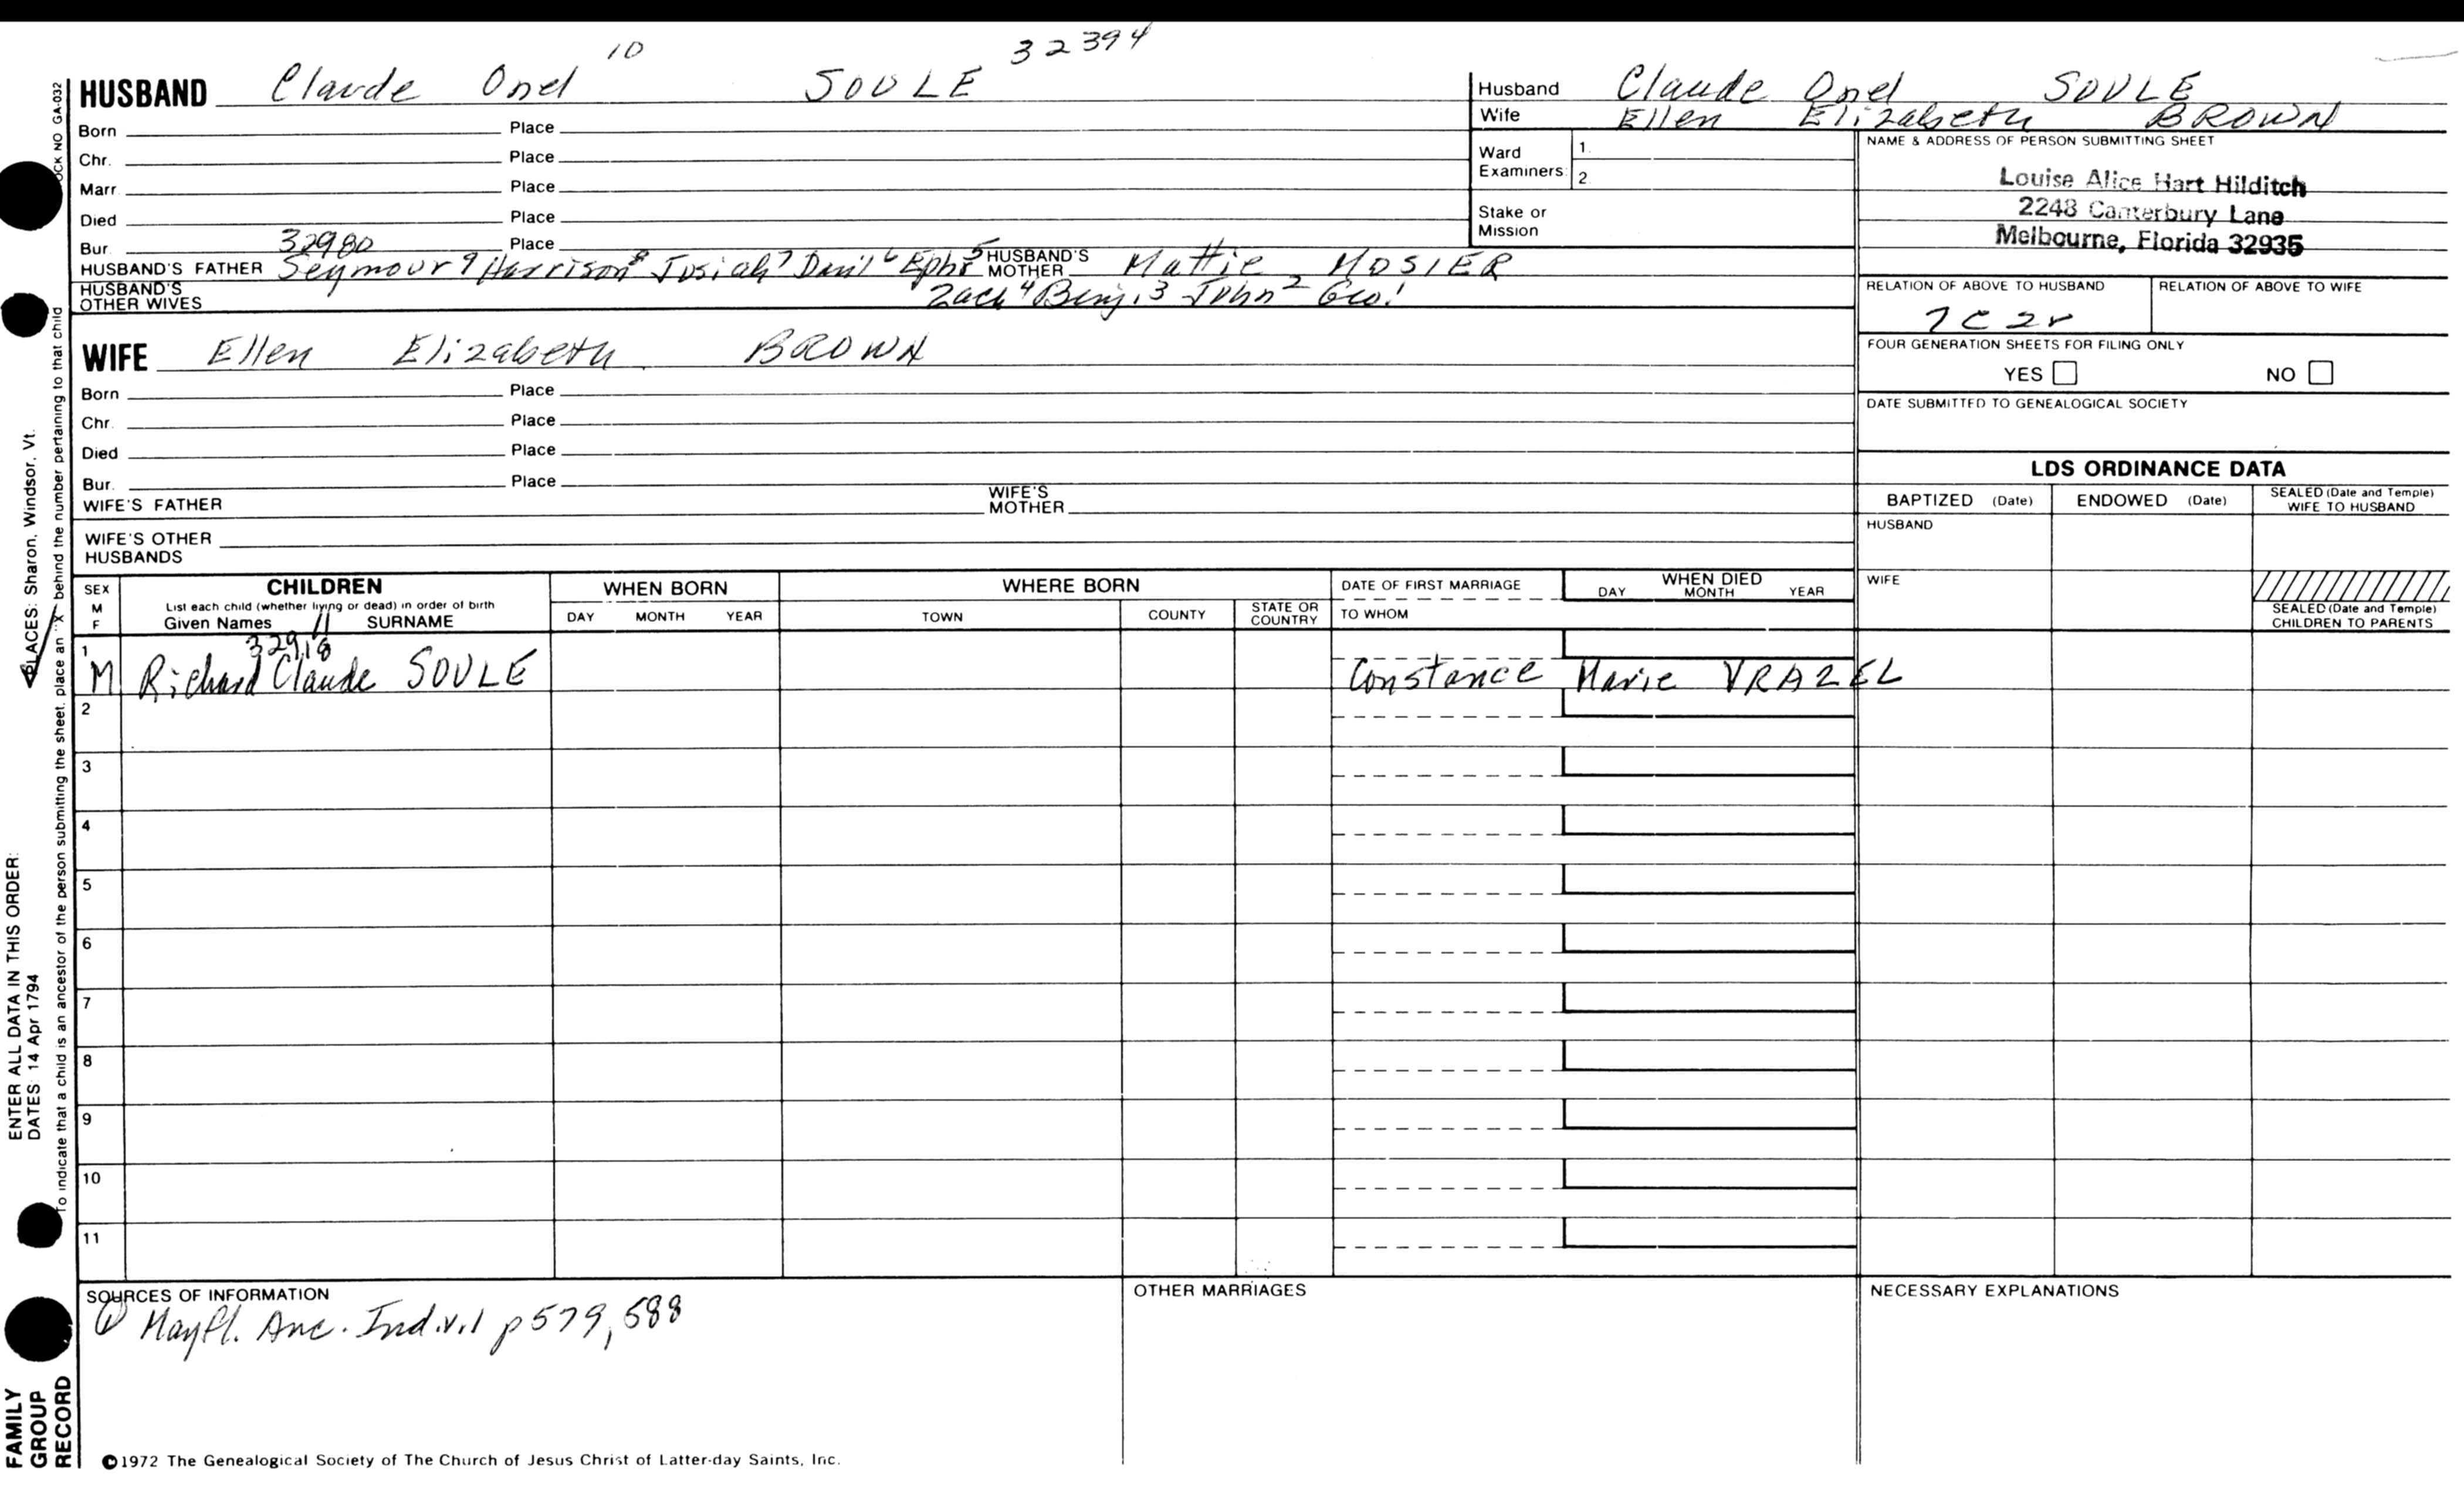 10
32394
HUSBAND Claude Onel SOULE
Born Place
Chr. Place
Marr. Place
Died Place
Bur. Place
32980
HUSBAND'S FATHER Seymour 9 Harrison 8 Josiah 7 Dan'l 6 Eph 5 HUSBAND'S MOTHER Mattie MOSIER
HUSBAND'S OTHER WIVES Zach 4 Benj. 3 John 2 Geo. 1
WIFE Ellen Elizabeth BROWN
Born Place
Chr. Place
Died Place
Bur. Place
WIFE'S FATHER WIFE'S MOTHER
WIFE'S OTHER HUSBANDS
Husband Claude Onel SOULE
Wife Ellen Elizabeth BROWN
Ward Examiners: 1. 2.
Stake or Mission
NAME & ADDRESS OF PERSON SUBMITTING SHEET
Louise Alice Hart Hilditch
2248 Canterbury Lane
Melbourne, Florida 32935
RELATION OF ABOVE TO HUSBAND RELATION OF ABOVE TO WIFE
7C2r
FOUR GENERATION SHEETS FOR FILING ONLY
YES NO
DATE SUBMITTED TO GENEALOGICAL SOCIETY
LDS ORDINANCE DATA
BAPTIZED (Date) ENDOWED (Date) SEALED (Date and Temple) WIFE TO HUSBAND
HUSBAND
WIFE
SEALED (Date and Temple) CHILDREN TO PARENTS
SEX M F CHILDREN WHEN BORN WHERE BORN DATE OF FIRST MARRIAGE WHEN DIED
List each child (whether living or dead) in order of birth
Given Names SURNAME DAY MONTH YEAR TOWN COUNTY STATE OR COUNTRY TO WHOM DAY MONTH YEAR
11
32918
1 M Richard Claude SOULE Constance Marie VRAZEL
2
3
4
5
6
7
8
9
10
11
SOURCES OF INFORMATION OTHER MARRIAGES NECESSARY EXPLANATIONS
① Mayfl. Anc. Ind. v.1 p579, 588
©1972 The Genealogical Society of The Church of Jesus Christ of Latter-day Saints, Inc.
FAMILY GROUP RECORD
ENTER ALL DATA IN THIS ORDER:
DATES 14 Apr 1794
PLACES: Sharon, Windsor, Vt.
To indicate that a child is an ancestor of the person submitting the sheet, place an "X" behind the number pertaining to that child
OCK NO GA-032